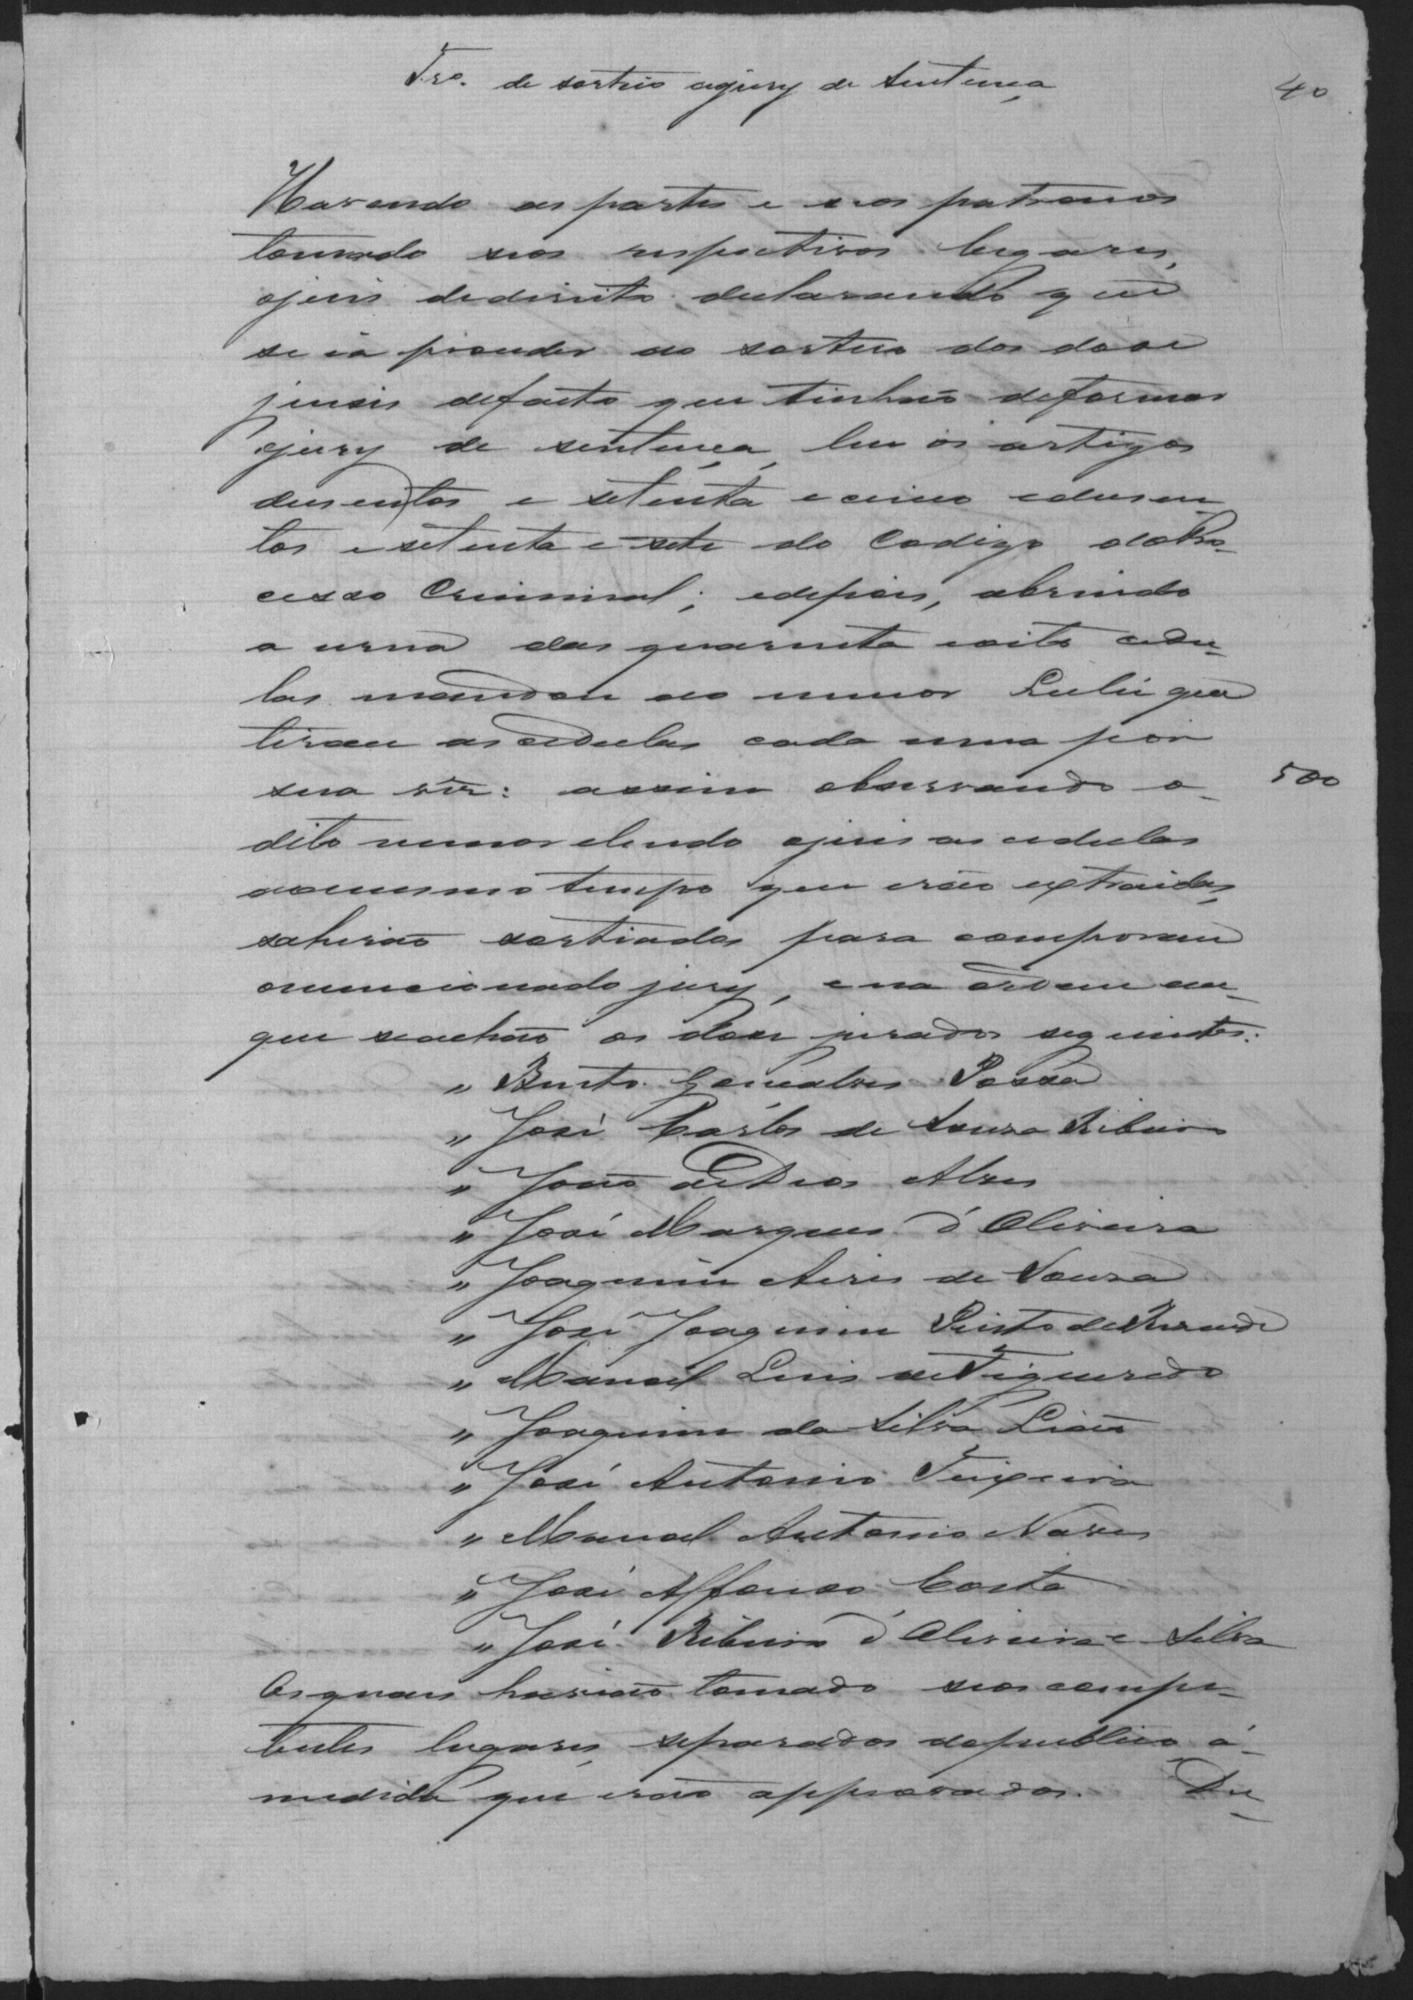 Tro. de sorteio ojury de Sentença
40
Havendo as partes e seos patronos
tomado seos respectivos lugares,
ojuis dedireito, declarando que
se ia proceder ao sorteio dos dose
juises defacto que tinhão deformar
ojury de sentença, leu os artigos
dusentos e setenta e cinco edusen-
tos e setenta e sete do Codigo doPro-
cesso Criminal; edepois, abrindo
a urna das quarenta eoito cedu-
las mandou ao menor Lulú que
tirau as cedulas cada uma por
sua vez: assim observando o-
500
dito menor elendo ojuis as cedulas
aomesmo tempo que erão extraidas,
sahirão sortiados para comporem
omencionado jury, e na ordem em-
que seachão os dose jurados seguintes:
" Bento Gonçalves Passa
" José Carlos de Souza Ribeiro
" João deDeos Alves
" José Marques d'Oliveira
" Joaquim Aires de Souza
" José Joaquim Pinto deResende
" Manoel Luis deFigueredo
" Joaquim da Silva Leão
" José Antonio Teixeira
" Manoel Antonio Naves
" José Affonso Costa
" José Ribeiro d'Oliveira e Silva
Osquaes havião tomado seos compe-
tentes lugares, separados dopublico á-
medida que erão approvados. De-